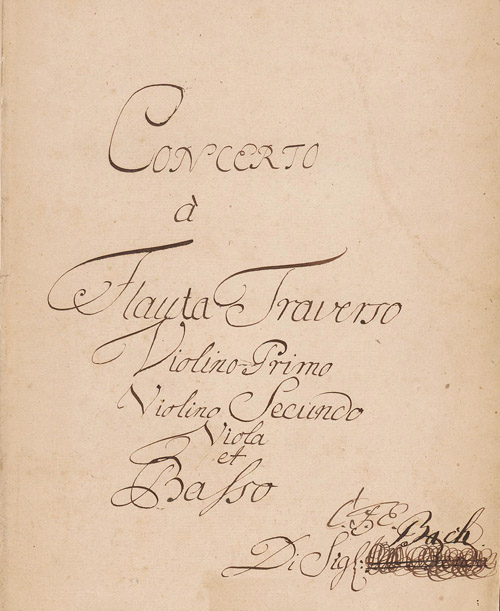 Concerto
à
Flauta Traverso
Violino Primo
Violino Secundo
Viola
et
Basso
C. F. E. Bach
Di Sigl: